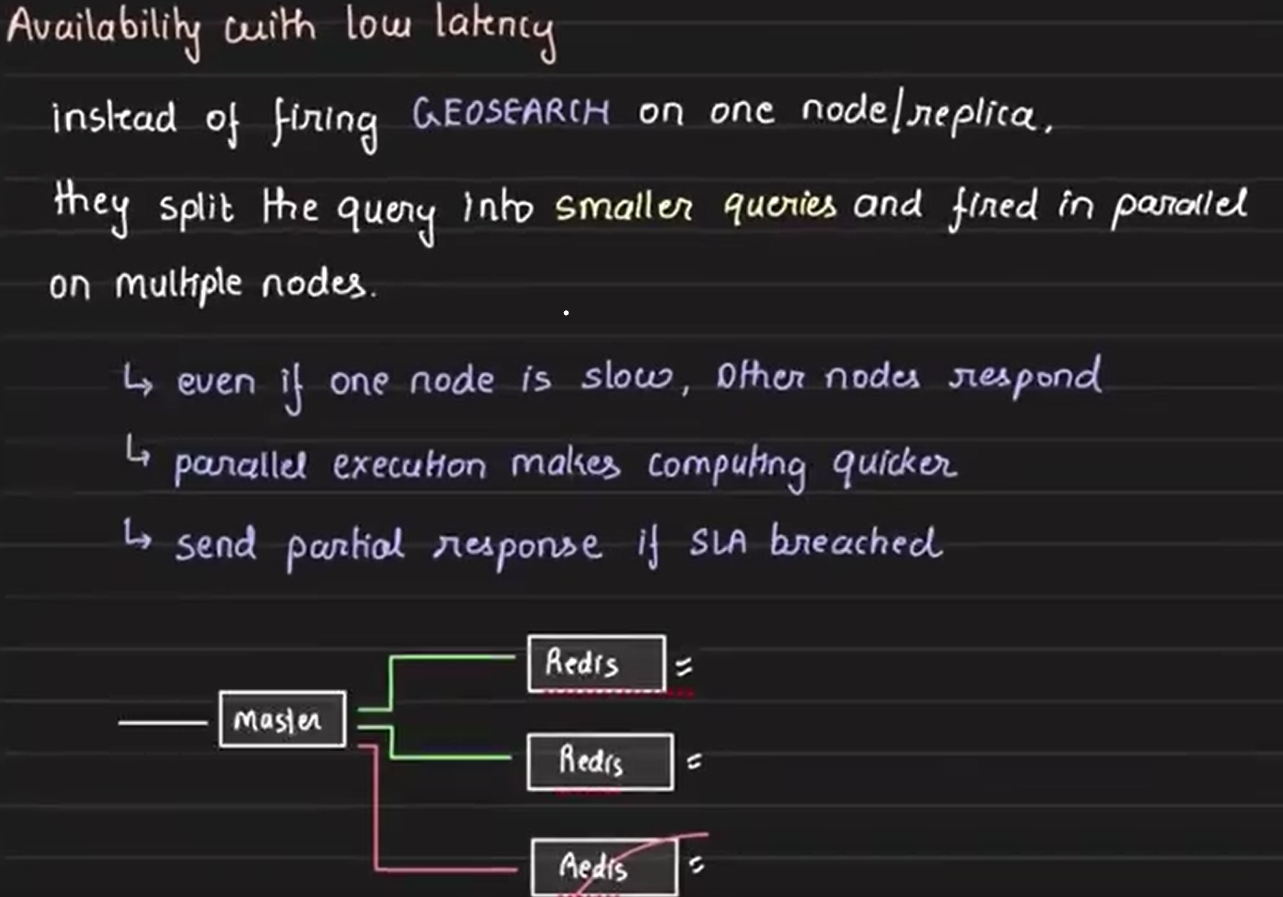 Availability with low latency
instead of firing GEOSEARCH on one node/replica,
they split the query into smaller queries and fired in parallel
on multiple nodes.
↳ even if one node is slow, other nodes respond
↳ parallel execution makes computing quicker
↳ send partial response if SLA breached
Redis
Master
Redis
Redis